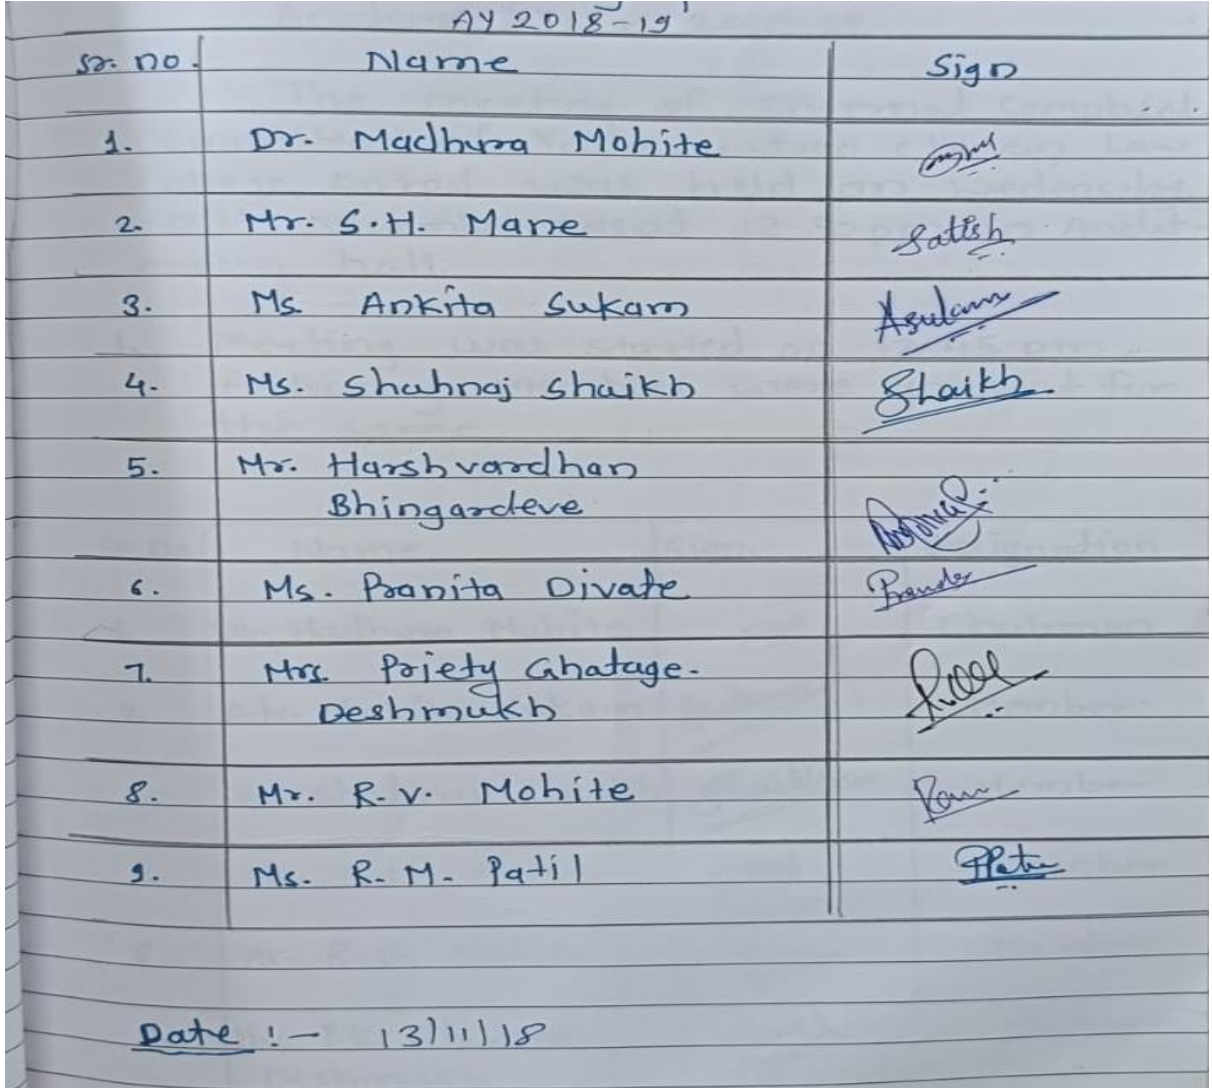 AY 2018-19
Sr. no. Name Sign
1. Dr. Madhura Mohite
2. Mr. S.H. Mane Satish
3. Ms. Ankita Sukam Asukam
4. Ms. Shahnaj Shaikh Shaikh
5. Mr. Harshvardhan
Bhingardeve
6. Ms. Pranita Divate
7. Mrs. Priety Ghatage-
Deshmukh
8. Mr. R.V. Mohite
9. Ms. R.M. Patil
Date :- 13/11/18